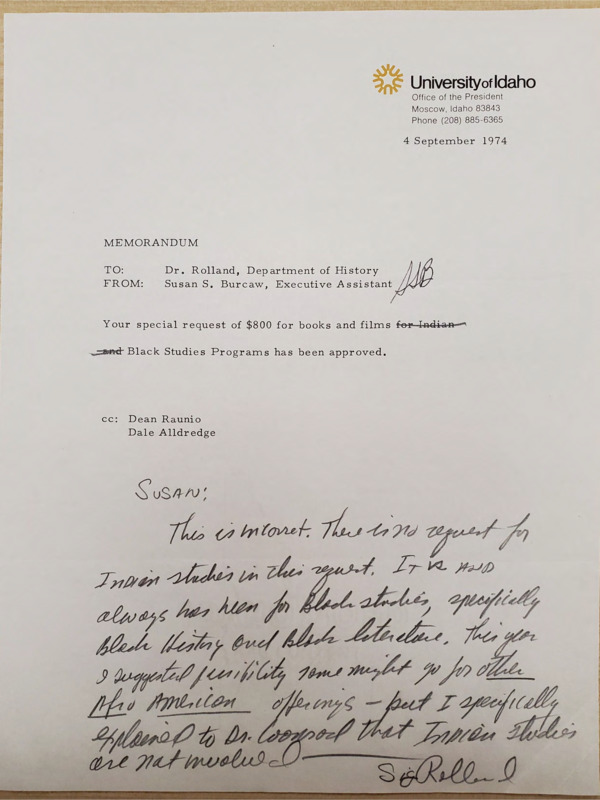 University of Idaho
Office of the President
Moscow, Idaho 83843
Phone (208) 885-6365
4 September 1974
MEMORANDUM
TO: Dr. Rolland, Department of History
FROM: Susan S. Burcaw, Executive Assistant SSB
Your special request of $800 for books and films for Indian
and Black Studies Programs has been approved.
cc: Dean Raunio
Dale Alldredge
SUSAN:
This is incorrect. There is no request for
Indian studies in this request. It is AND
always has been for Black studies, specifically
Black History and Black literature. This year
I suggested possibility some might go for other
Afro American offerings – but I specifically
explained to Dr. Coonrod that Indian Studies
are not involved
Rolland